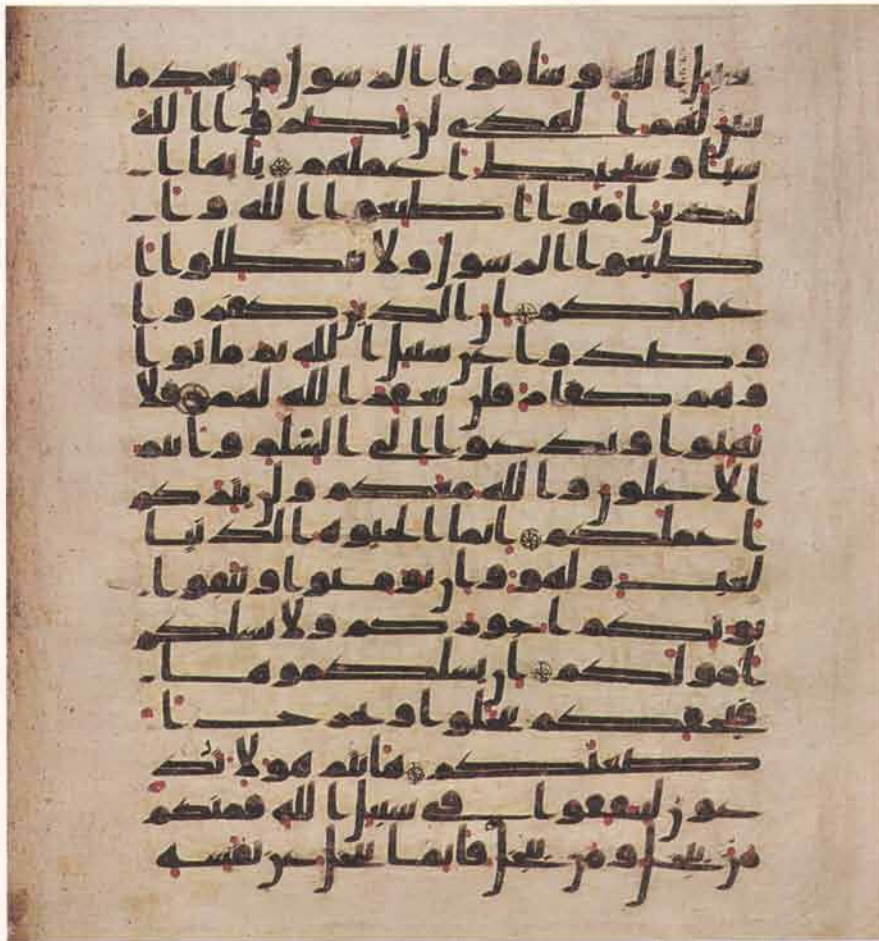 سبيل الله وشاقوا الرسول من بعد ما
تبين لهم الهدى لن يضروا الله
شيا وسيحبط اعملهم يايها ا
لذين امنوا اطيعوا الله وا
طيعوا الرسول ولا تبطلوا ا
عملكم ان الذين كفروا
وصدوا عن سبيل الله ثم ماتوا
وهم كفار فلن يغفر الله لهم فلا
تهنوا وتدعوا الى السلم وانتم
الاعلون والله معكم ولن يتركم
اعملكم انما الحيوة الدنيا
لعب ولهو وان تومنوا وتتقوا
يوتكم اجوركم ولا يسلكم
امولكم ان يسلكموها
فيحفكم تبخلوا ويخرج ا
ضغنكم هانتم هولا تد
عون لتنفقوا في سبيل الله فمنكم
من يبخل ومن يبخل فانما يبخل عن نفسه